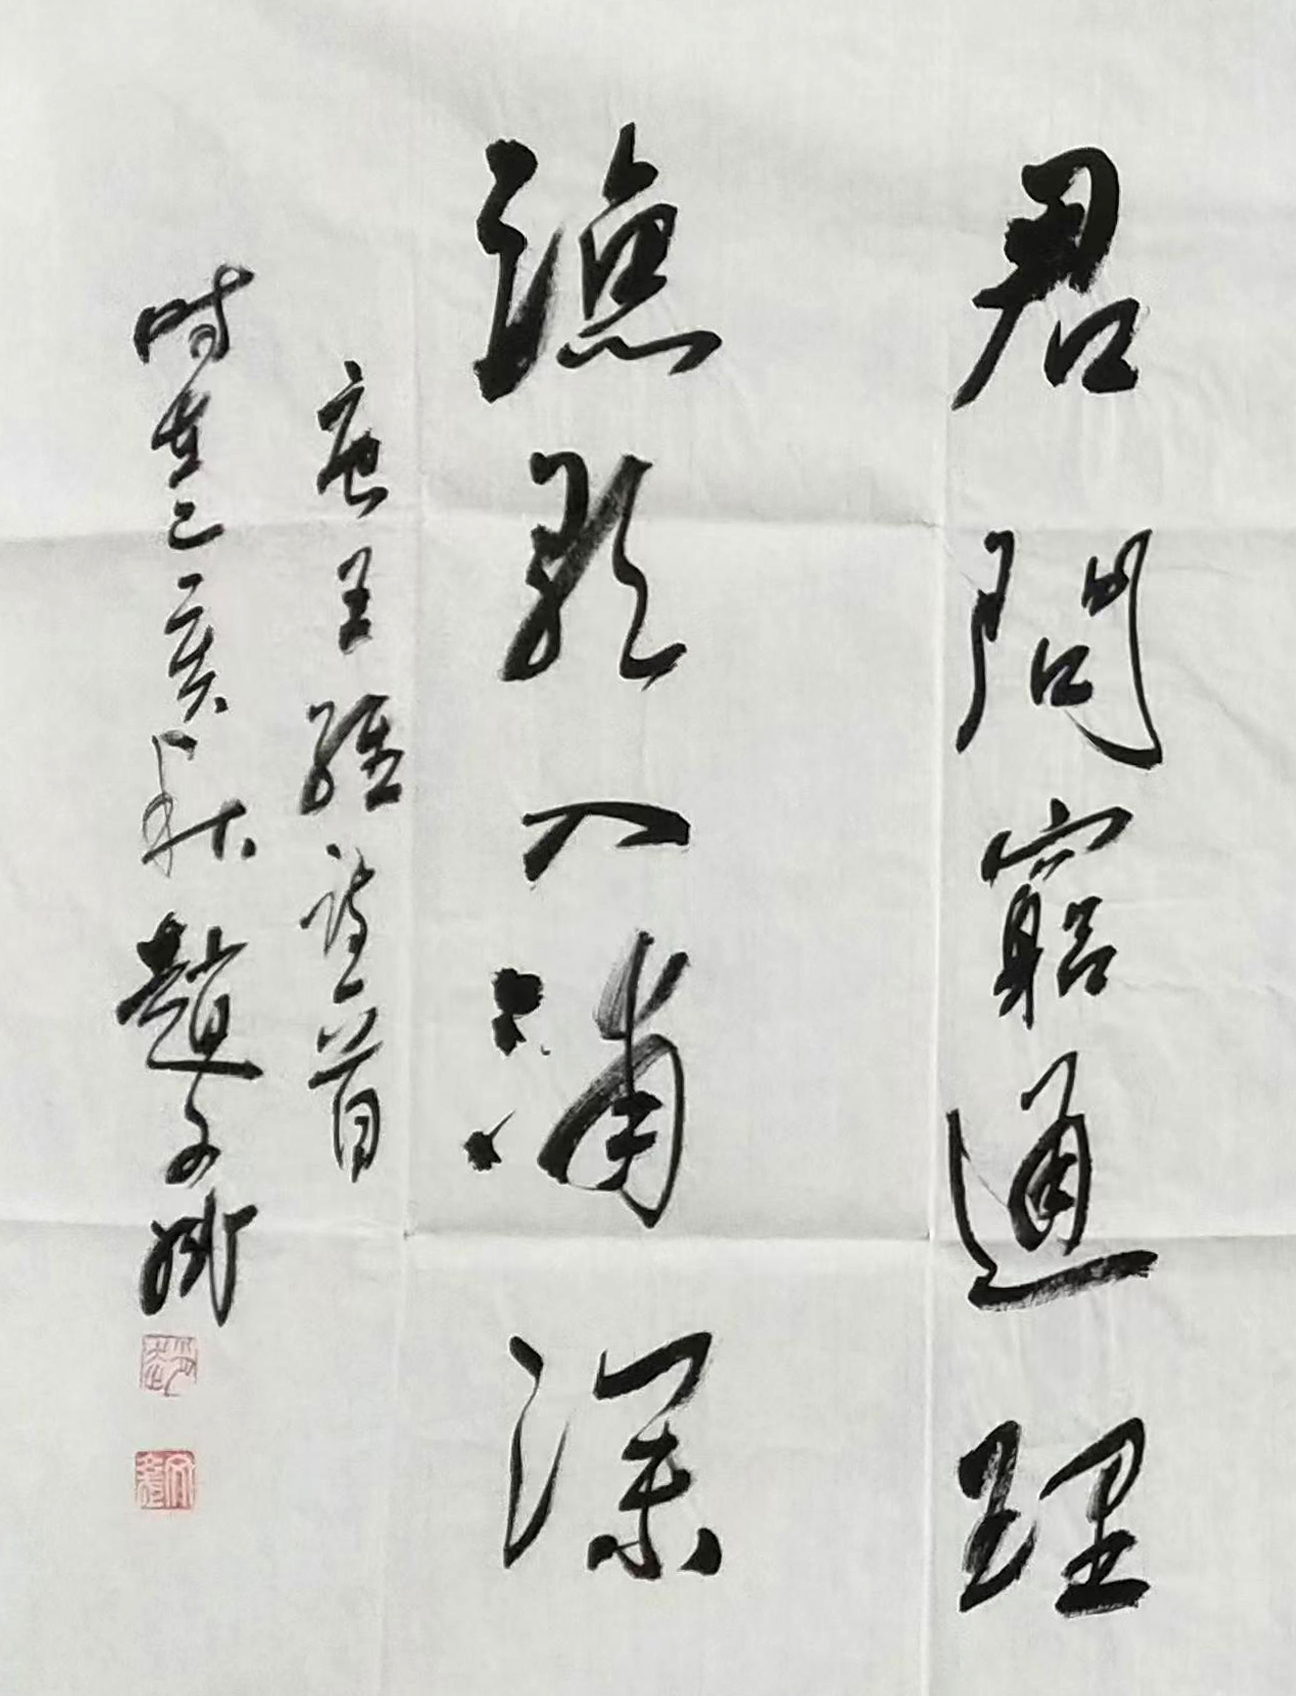 君問窮通理
漁歌入浦深
唐王維詩一首
時在己亥秋趙子